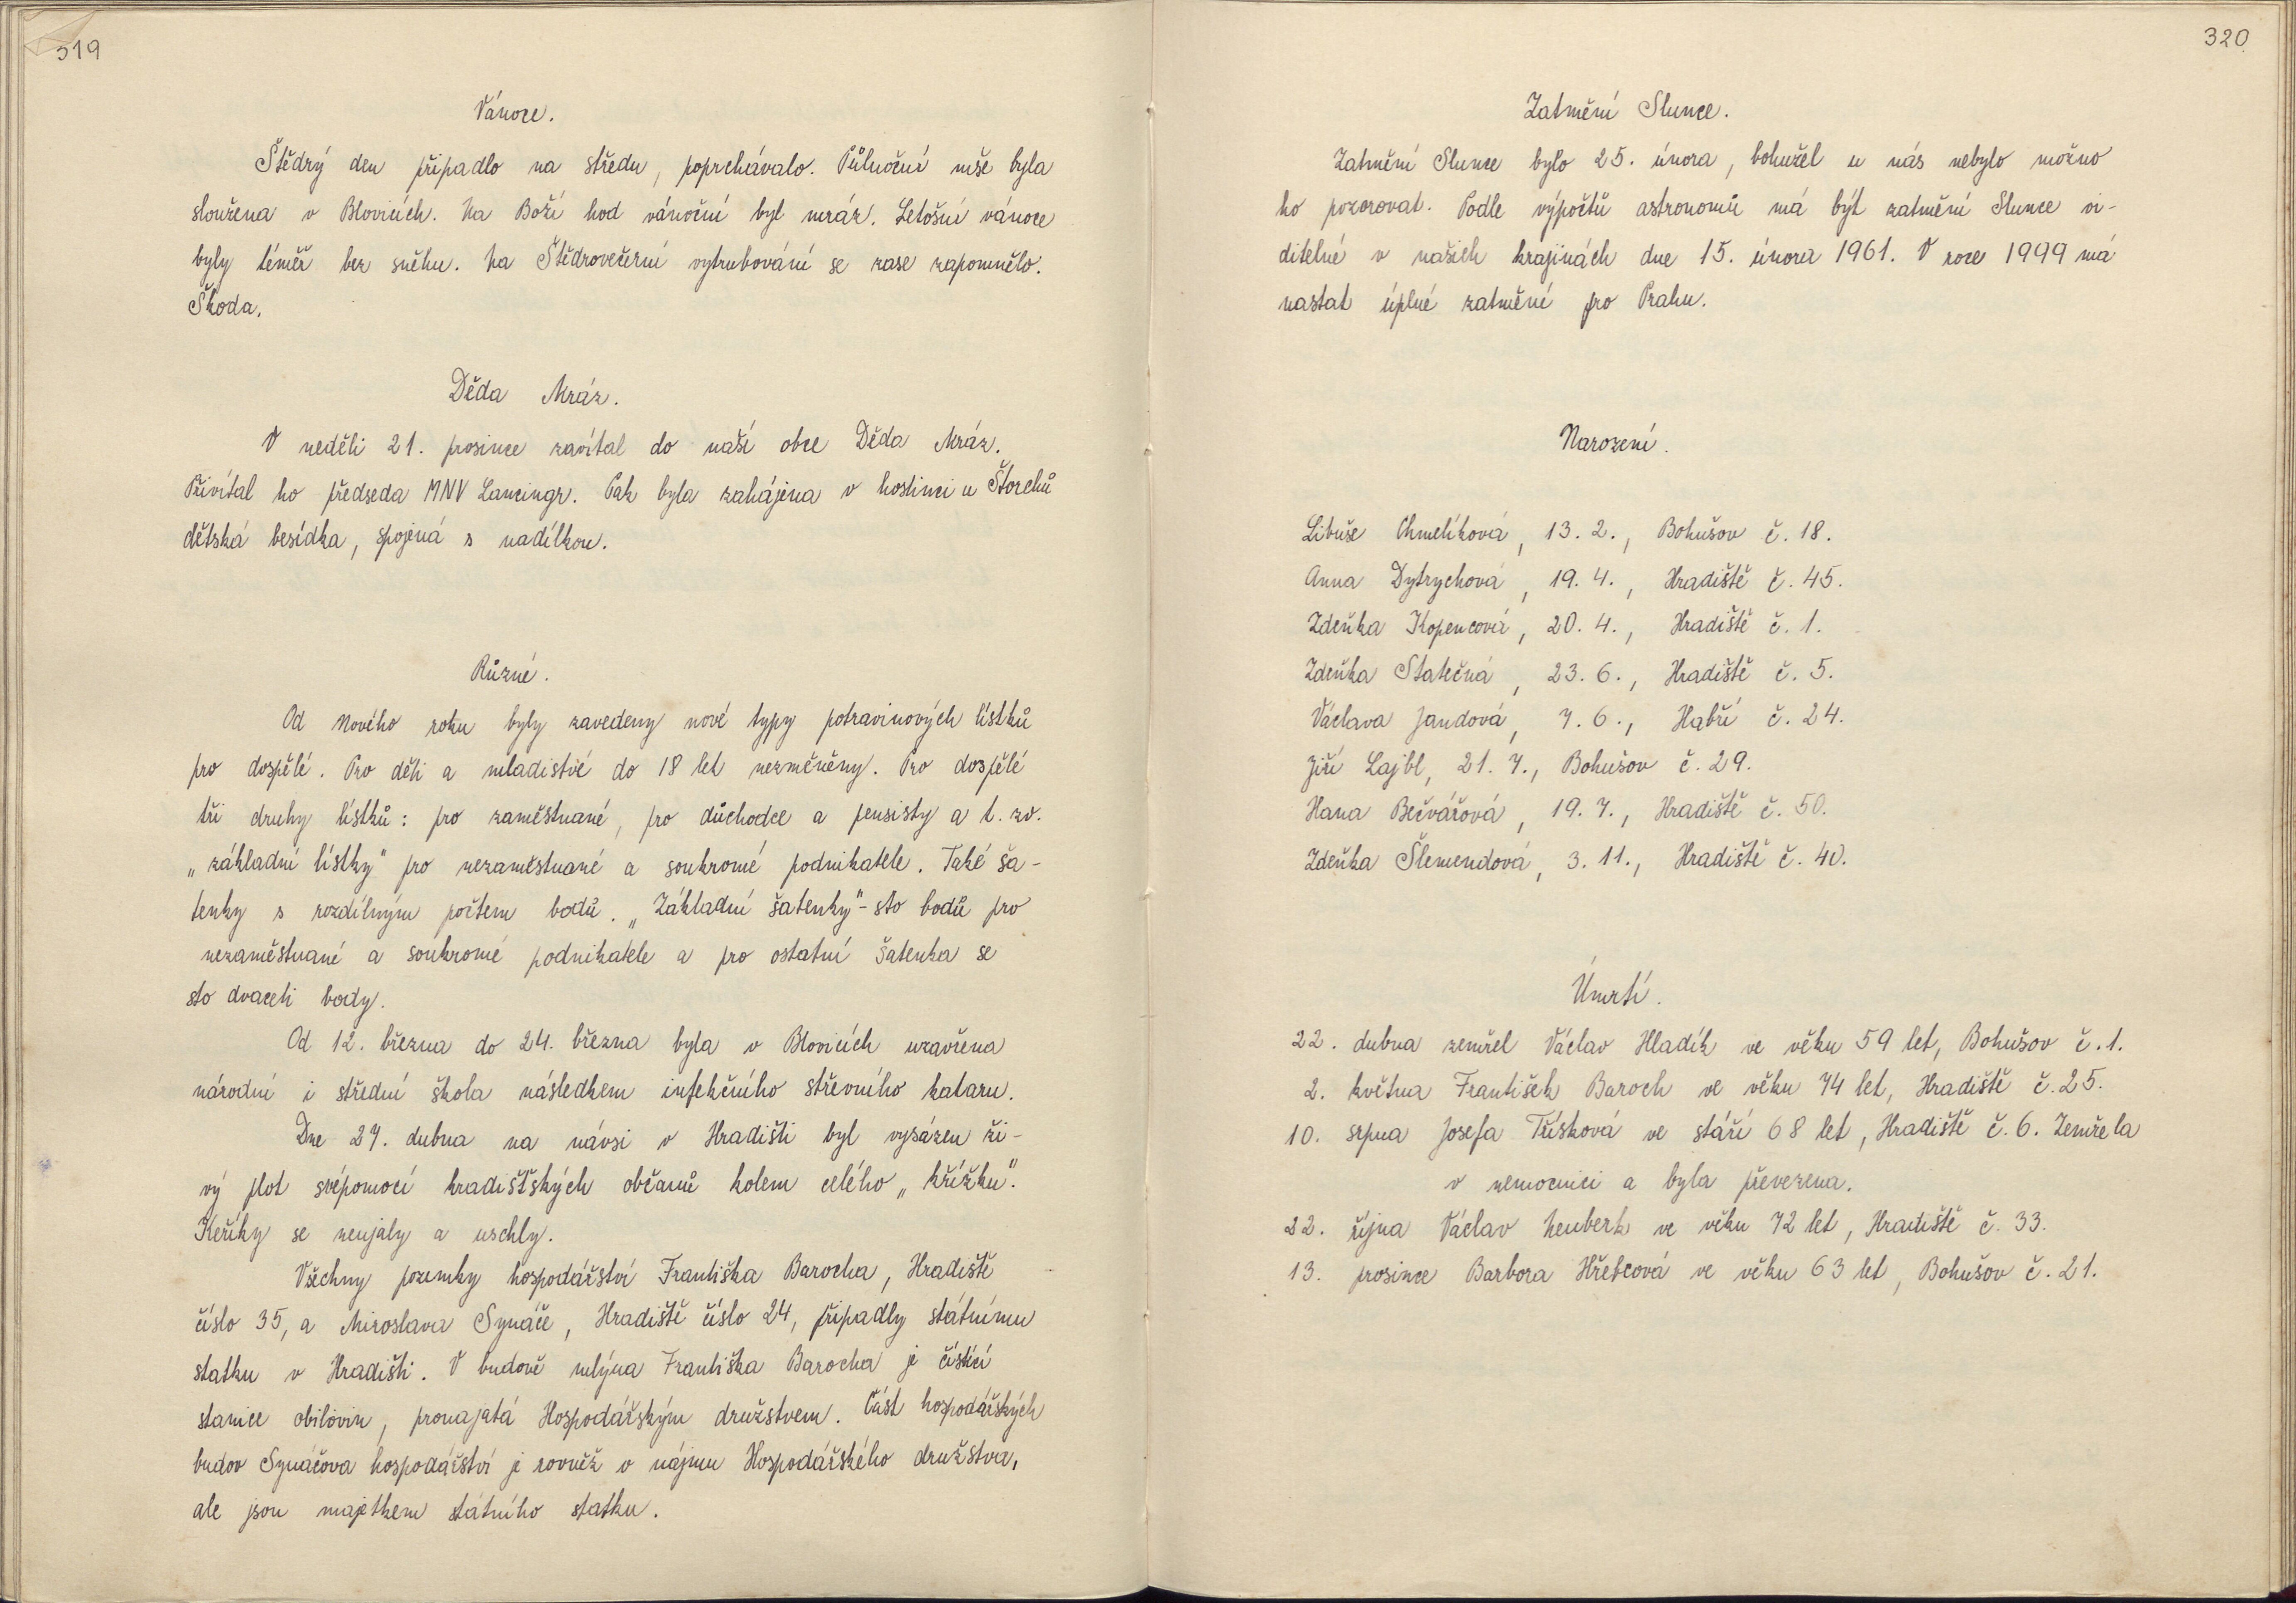 319
Vánoce.
Štědrý den připadlo na středu, poprchávalo. Půlnoční mše byla
sloužena v Blovicích. Na Boží hod vánoční byl mráz. Letošní vánoce
byly téměř bez sněhu. Na Štědrovečerní vytrubování se zase zapomnělo.
Škoda.
Děda Mráz.
V neděli 21. prosince zavítal do naší obce Děda Mráz.
Přivítal ho předseda MNV Lancingr. Pak byla zahájena v hostinci u Štorchů
dětská besídka, spojená s nadílkou.
Různé.
Od Nového roku byly zavedeny nové typy potravinových lístků
pro dospělé. Pro děti a mladistvé do 18 let nezměněny. Pro dospělé
tři druhy lístků: pro zaměstnané, pro důchodce a pensisty a t. zv.
„základní lístky" pro nezaměstnané a soukromé podnikatele. Také ša-
tenky s rozdílným počtem bodů. „Základní šatenky"- sto bodů pro
nezaměstnané a soukromé podnikatele a pro ostatní šatenka se
sto dvaceti body.
Od 12. března do 24. března byla v Blovicích uzavřena
národní i střední škola následkem infekčního střevního kataru.
Dne 27. dubna na návsi v Hradišti byl vysázen ži-
vý plot svépomocí hradišťských občanů kolem celého „křížku".
Keříky se neujaly a uschly.
Všechny pozemky hospodářství Františka Barocha, Hradiště
číslo 35, a Miroslava Synáče, Hradiště číslo 24, připadly státnímu
statku v Hradišti. V budově mlýna Františka Barocha je čistící
stanice obilovin, pronajatá Hospodářským družstvem. Část hospodářských
budov Synáčova hospodářství je rovněž v nájmu Hospodářského družstva,
ale jsou majetkem státního statku.
320
Zatmění Slunce.
Zatmění Slunce bylo 25. února, bohužel u nás nebylo možno
ho pozorovat. Podle výpočtů astronomů má být zatmění Slunce vi-
ditelné v našich krajinách dne 15. února 1961. V roce 1999 má
nastat úplné zatmění pro Prahu.
Narození.
Libuše Chmelíková, 13. 2., Bohušov č. 18.
Anna Dytrychová, 19. 4., Hradiště č. 45.
Zdeňka Kopencová, 20. 4., Hradiště č. 1.
Zdeňka Statečná, 23. 6., Hradiště č. 5.
Václava Jandová, 7. 6., Habří č. 24.
Jiří Lajbl, 21. 7., Bohušov č. 29.
Hana Bečvářová, 19. 7., Hradiště č. 50.
Zdeňka Šlemendová, 3. 11., Hradiště č. 40.
Úmrtí.
22. dubna zemřel Václav Hladík ve věku 59 let, Bohušov č. 1.
2. května František Baroch ve věku 74 let, Hradiště č. 25.
10. srpna Josefa Třísková ve stáří 68 let, Hradiště č. 6. Zemřela
v nemocnici a byla převezena.
22. října Václav Neuberk ve věku 72 let, Hradiště č. 33.
13. prosince Barbora Hřebcová ve věku 63 let, Bohušov č. 21.